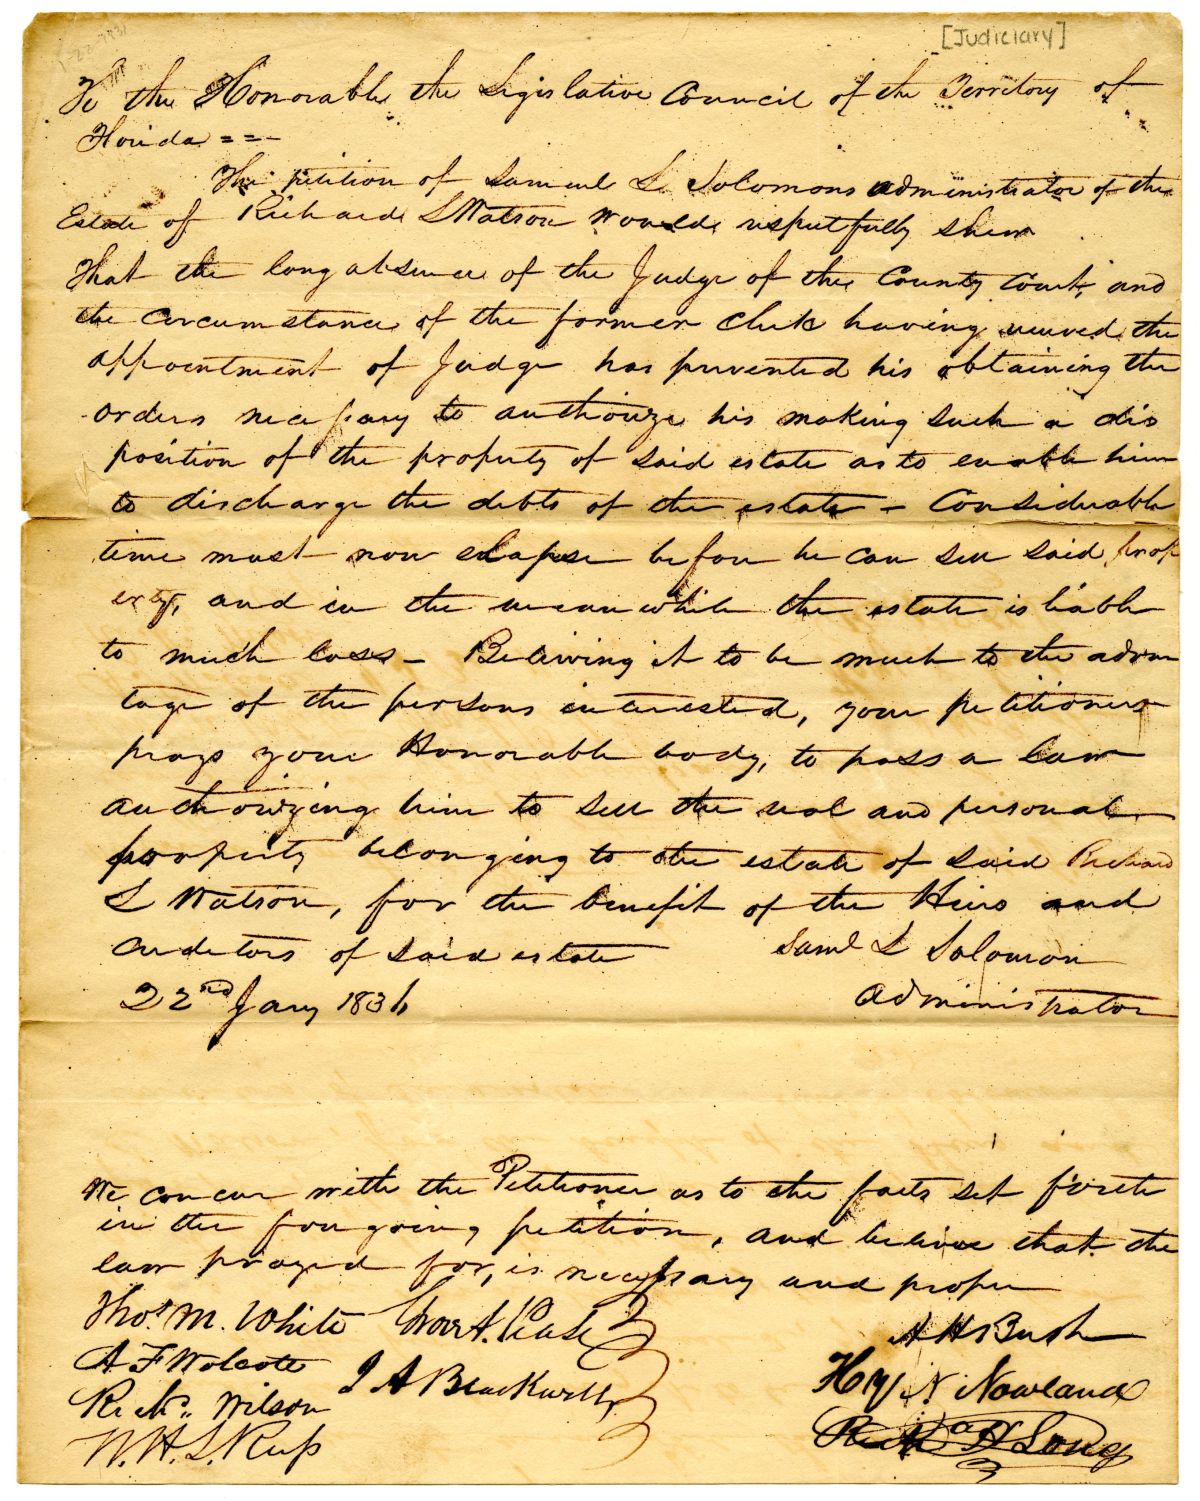 [Judiciary]
To the Honorable the Legislative Council of the Territory of
Florida = = -
The petition of Samuel L Solomons administrator of the
Estate of Richard L Watson would respectfully shew
That the long absence of the Judge of the County Court, and
the circumstance of the former Clerk having received the
appointment of Judge has prevented his obtaining the
orders necessary to authorize his making such a dis
position of the property of said estate as to enable him
to discharge the debts of the estate - Considerable
time must now elapse before he can sell said prop
erty, and in the meanwhile the estate is liable
to much loss - Believing it to be much to the advan
tage of the persons interested, your petitioner
prays your Honorable body, to pass a law
authorizing him to sell the real and personal
property belonging to the estate of said Richard
L Watson, for the benefit of the Heirs and
creditors of said estate
Saml L Solomon
22nd Jany 1836
Administrator
We concur with the Petitioner as to the facts set forth
in the foregoing petition, and believe that the
law prayed for, is necessary and proper
Thos. M. White
A F Wolcott
J A Blackwell
Richd. Wilson
W. H. L. Russ
A H Bush
Hay N. Nowland
Richd H Long